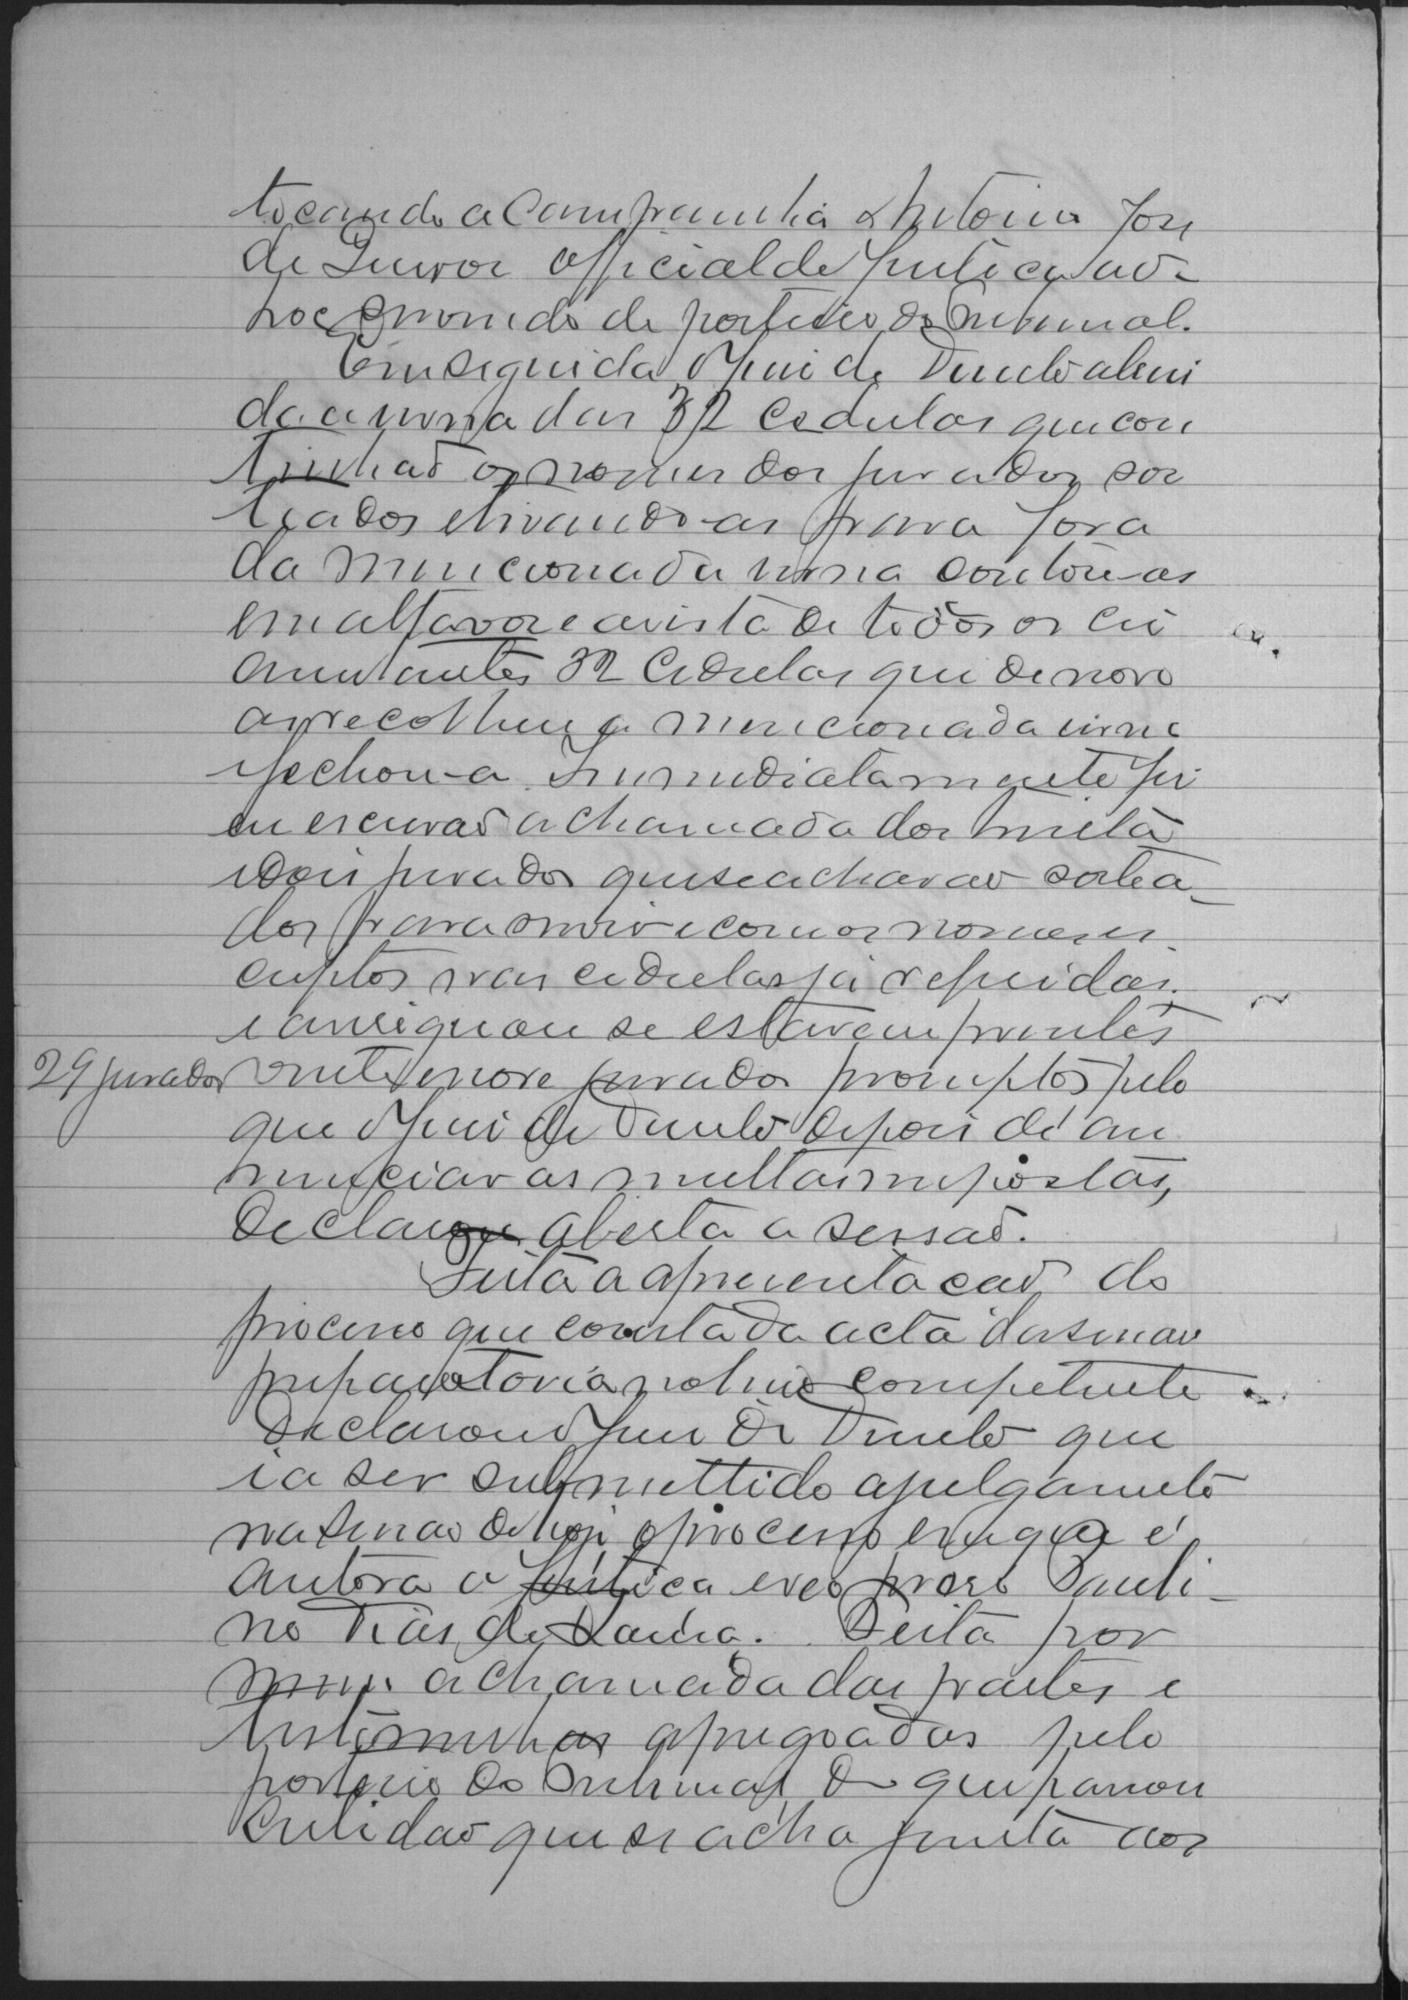 tocando a campainha Antonio José
de official de Justiça ad-
hoc servindo de porteiro do Tribunal.
Em seguida o Juiz de Direito abrin
do a urna das 32 cedulas que con
tinhaõ os nomes dos jurados sor
teados e tirando-as para fora
da mencionada urna contou-as
em alta voz e a vista de todos os cir
cunstantes 32 cedulas que de novo
as recolheu a mencionada urna
e fechou-a. Immediatamente fiz
eu escrivaõ a chamada dos trinta
e dois jurados que se acharaõ sortea-
dos para servir e com os nomes es-
criptos nas cedulas já referidas.
e averiguou-se estarem presentes
29 jurados vinte e nove jurados promptos pelo
que o Juiz de Direito depois de an
nunciar as multas impostas,
declarou aberta a sessaõ.
Feita a apresentaçaõ do
processo que consta da acta da sessaõ
preparatoria no livro competente
declarou o Juiz de Direito que
ia ser submettido a julgamento
na sessaõ de hoje o processo em que é
autora a Justiça e reo preso Pauli-
no Dias de . Feita por
mim a chamada das partes e
testemunhas apregoadas pelo
porteiro do Tribunal, do que passou
certidaõ que se acha junta aos